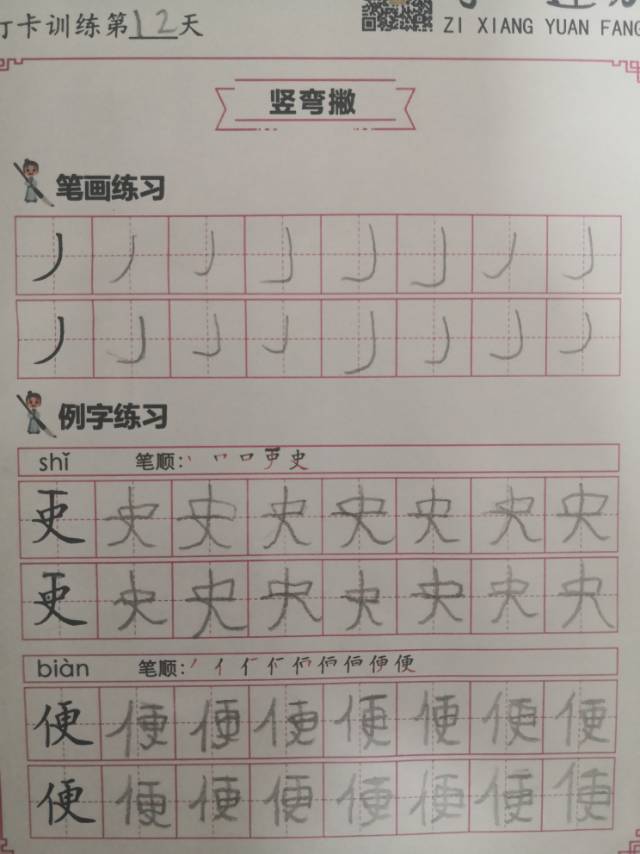 打卡训练第12天
ZI XIANG YUAN FANG
竖弯撇
笔画练习
丿 丿 丿 丿 丿 丿 丿 丿
丿 丿 丿 丿 丿 丿 丿 丿
例字练习
shǐ 笔顺: 史
史 史 史 史 史 史 史
史 史 史 史 史 史 史
biàn 笔顺: 丿 亻 便 便
便 便 便 便 便 便 便 便
便 便 便 便 便 便 便 便